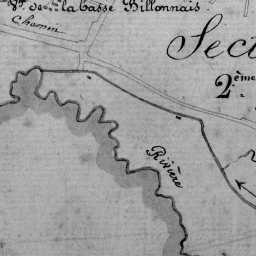 de la basse Billonnais
Chemin
Sect
2.ème
Rivière